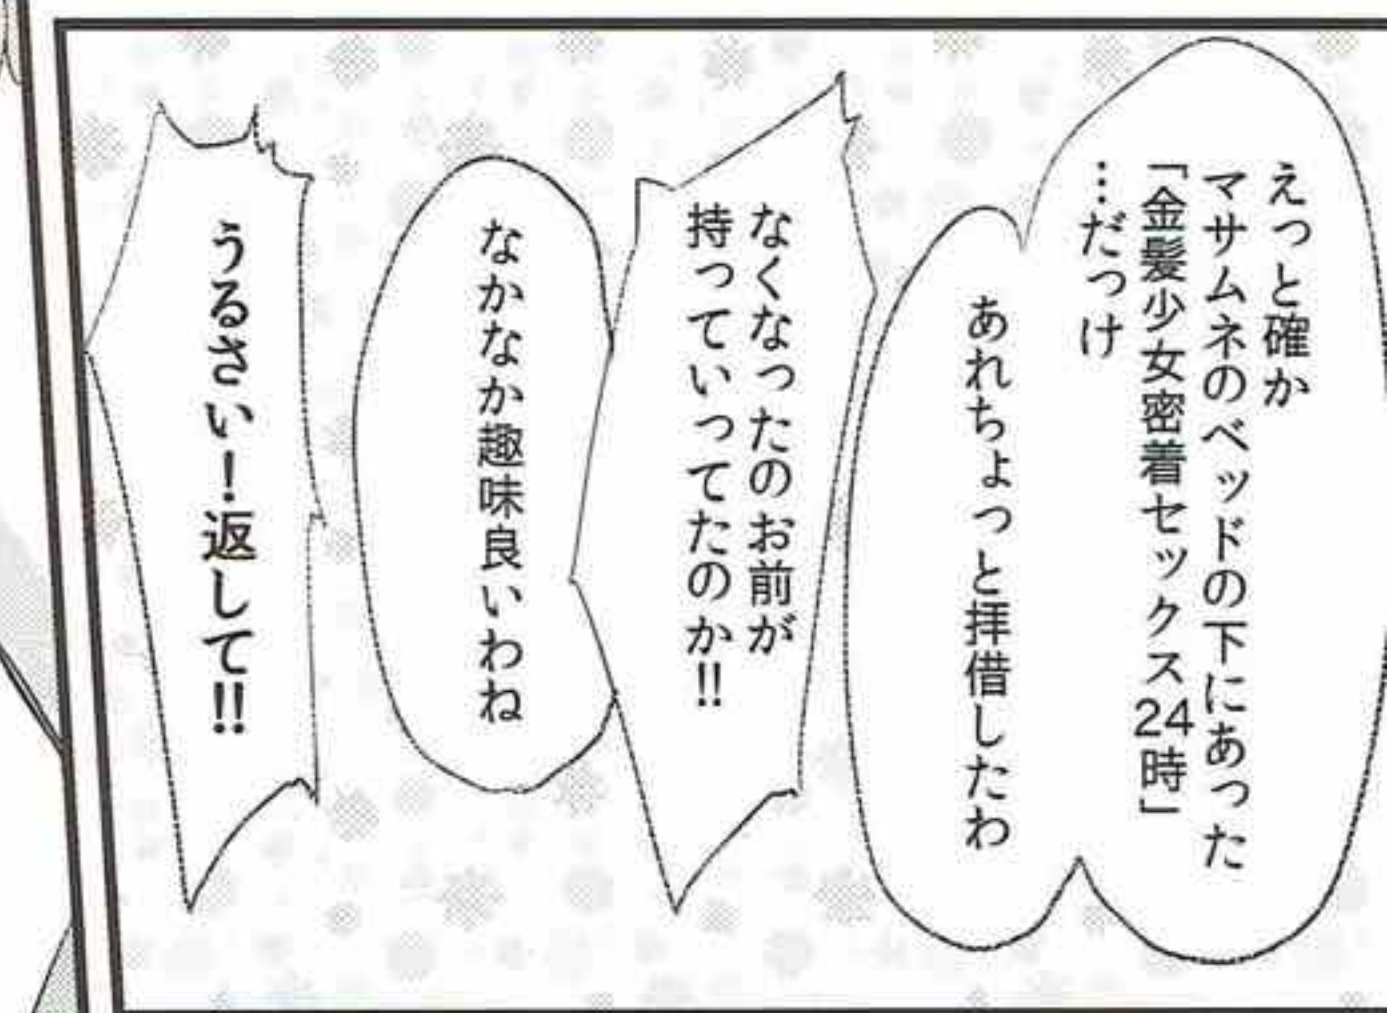 えっと確か
マサムネのベッドの下にあった
「金髪少女密着セックス24時」
…だっけ
あれちょっと拝借したわ
なくなったのお前が
持っていってたのか!!
なかなか趣味良いわね
うるさい！返して!!